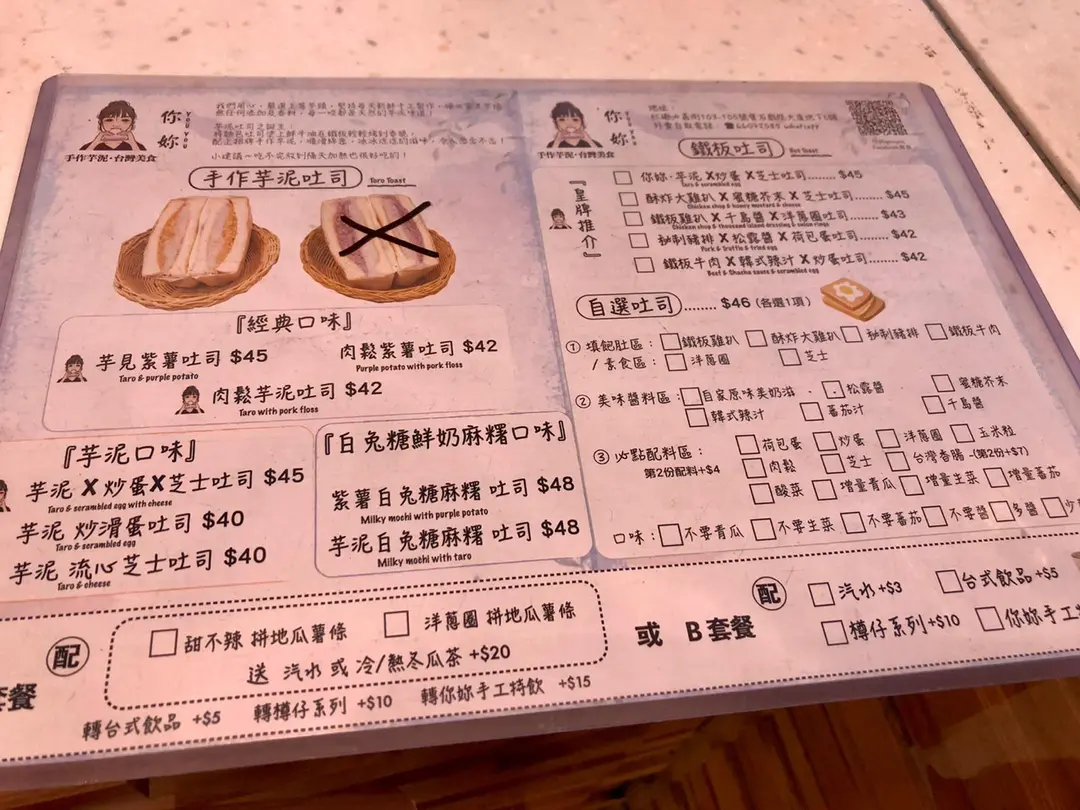 你妳
YOU YOU
手作芋泥·台灣美食
芋泥吐司之誕生:
小建議~吃不完放到隔天加熱也很好吃的!
手作芋泥吐司
Toro Toast
『經典口味』
芋見紫薯吐司 $45
Taro & purple potato
肉鬆紫薯吐司 $42
Purple potato with pork floss
肉鬆芋泥吐司 $42
Taro with pork floss
『芋泥口味』
芋泥 X 炒蛋X芝士吐司 $45
Taro & scrambled egg with cheese
芋泥 炒滑蛋吐司 $40
Taro & scrambled egg
芋泥 流心芝士吐司 $40
Taro & cheese
『白兔糖鮮奶麻糬口味』
紫薯白兔糖麻糬 吐司 $48
Milky mochi with purple potato
芋泥白兔糖麻糬 吐司 $48
Milky mochi with taro
你妳
YOU YOU
手作芋泥·台灣美食
地址:
鐵板吐司
Hot Toast
『皇牌推介』
你妳·芋泥 X炒蛋 X芝士吐司........ $45
Taro & scrambled egg
酥炸大雞扒 X 蜜糖芥末 X 芝士吐司........ $45
Chicken chop & honey mustard & cheese
鐵板雞扒 X 千島醬 X 洋蔥圈吐司........ $43
Chicken chop & thousand island dressing & onion rings
秘制豬排 X 松露醬 X 荷包蛋吐司........ $42
Pork & Truffle & fried egg
鐵板牛肉 X 韓式辣汁 X 炒蛋吐司........ $42
Beef & Shacha sauce & scrambled egg
自選吐司........ $46 (各選1項)
① 填飽肚區: 鐵板雞扒 酥炸大雞扒 秘制豬排 鐵板牛肉
/ 素食區: 洋蔥圈 芝士
② 美味醬料區: 自家原味美奶滋 松露醬 蜜糖芥末
韓式辣汁 番茄汁 千島醬
③ 必點配料區: 荷包蛋 炒蛋 洋蔥圈 玉米粒
第2份配料+$4 肉鬆 芝士 台灣香腸 -(第2份+$7)
酸菜 增量青瓜 增量生菜 增量番茄
口味: 不要青瓜 不要生菜 不要番茄 不要醬 多醬 少
套餐 配
甜不辣 拼地瓜薯條 洋蔥圈 拼地瓜薯條
送 汽水 或 冷/熱冬瓜茶 +$20
轉台式飲品 +$5 轉樽仔系列 +$10 轉你妳手工特飲 +$15
或 B套餐 配
汽水 +$3 台式飲品 +$5
樽仔系列 +$10 你妳手工